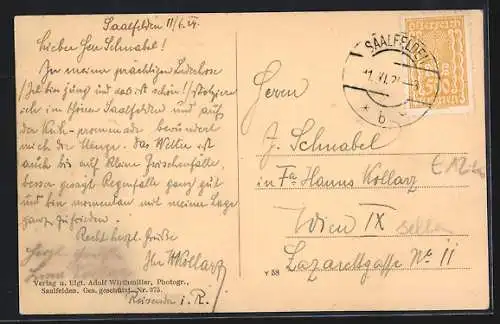 Saalfelden 11/6.24.
Lieber Herr Schnabel!
In meiner prächtigen Lederhose
/ Ich bin jung und das ist schön! / stolziere
ich im schönen Saalfelden und auf
der Kuh-promenade bewundert
mich die Menge. Das Wetter ist
auch bis auf kleine Zwischenfälle,
besser gesagt Regenfälle ganz gut
und bin momentan mit meiner Lage
ganz zufrieden.
Recht herzl. Grüße
Ihr Kollarz
Reisender i. R.
Herzl.
Verlag u. Eigt. Adolf Wirthmiller, Photogr.,
Saalfelden. Ges. geschützt. Nr. 375.
V 58
ÖSTERREICH
SAALFELDEN
* b *
Herrn
J. Schnabel
in Fa Hanns Kollarz
Wien IX
Lazarettgasse No 11